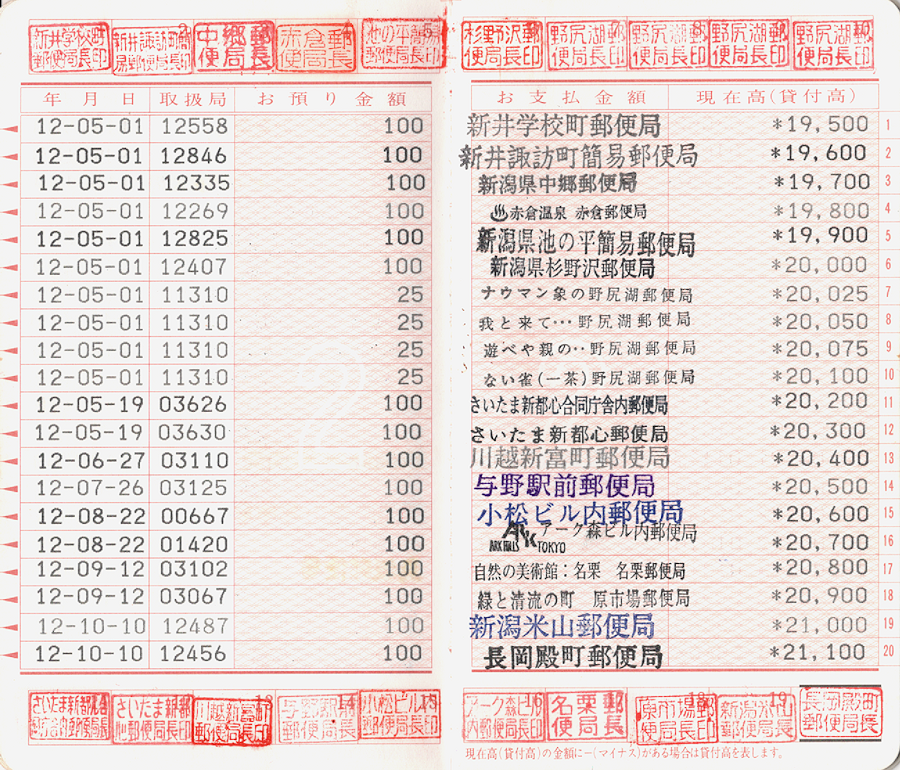 新井学校町郵便局長印
新井諏訪町簡易郵便局長印
中郷郵便局長
赤倉郵便局長印
池の平簡易郵便局長印
杉野沢郵便局長印
野尻湖郵便局長印
野尻湖郵便局長印
野尻湖郵便局長印
野尻湖郵便局長印
年月日 取扱局 お預り金額 お支払金額 現在高(貸付高)
12-05-01 12558 100 新井学校町郵便局 *19,500 1
12-05-01 12846 100 新井諏訪町簡易郵便局 *19,600 2
12-05-01 12335 100 新潟県中郷郵便局 *19,700 3
12-05-01 12269 100 ♨赤倉温泉 赤倉郵便局 *19,800 4
12-05-01 12825 100 新潟県池の平簡易郵便局 *19,900 5
12-05-01 12407 100 新潟県杉野沢郵便局 *20,000 6
12-05-01 11310 25 ナウマン象の野尻湖郵便局 *20,025 7
12-05-01 11310 25 我と来て…野尻湖郵便局 *20,050 8
12-05-01 11310 25 遊べや親の‥野尻湖郵便局 *20,075 9
12-05-01 11310 25 ない雀(一茶)野尻湖郵便局 *20,100 10
12-05-19 03626 100 さいたま新都心合同庁舎内郵便局 *20,200 11
12-05-19 03630 100 さいたま新都心郵便局 *20,300 12
12-06-27 03110 100 川越新富町郵便局 *20,400 13
12-07-26 03125 100 与野駅前郵便局 *20,500 14
12-08-22 00667 100 小松ビル内郵便局 *20,600 15
12-08-22 01420 100 ARK HILLS TOKYO アーク森ビル内郵便局 *20,700 16
12-09-12 03102 100 自然の美術館：名栗 名栗郵便局 *20,800 17
12-09-12 03067 100 緑と清流の町 原市場郵便局 *20,900 18
12-10-10 12487 100 新潟米山郵便局 *21,000 19
12-10-10 12456 100 長岡殿町郵便局 *21,100 20
川越新富町郵便局長印
与野駅前郵便局長印
小松ビル内郵便局長印
アーク森ビル内郵便局長印
名栗郵便局長
原市場郵便局長印
新潟米山郵便局長印
長岡殿町郵便局長
現在高(貸付高)の金額に－(マイナス)がある場合は貸付高を表します。